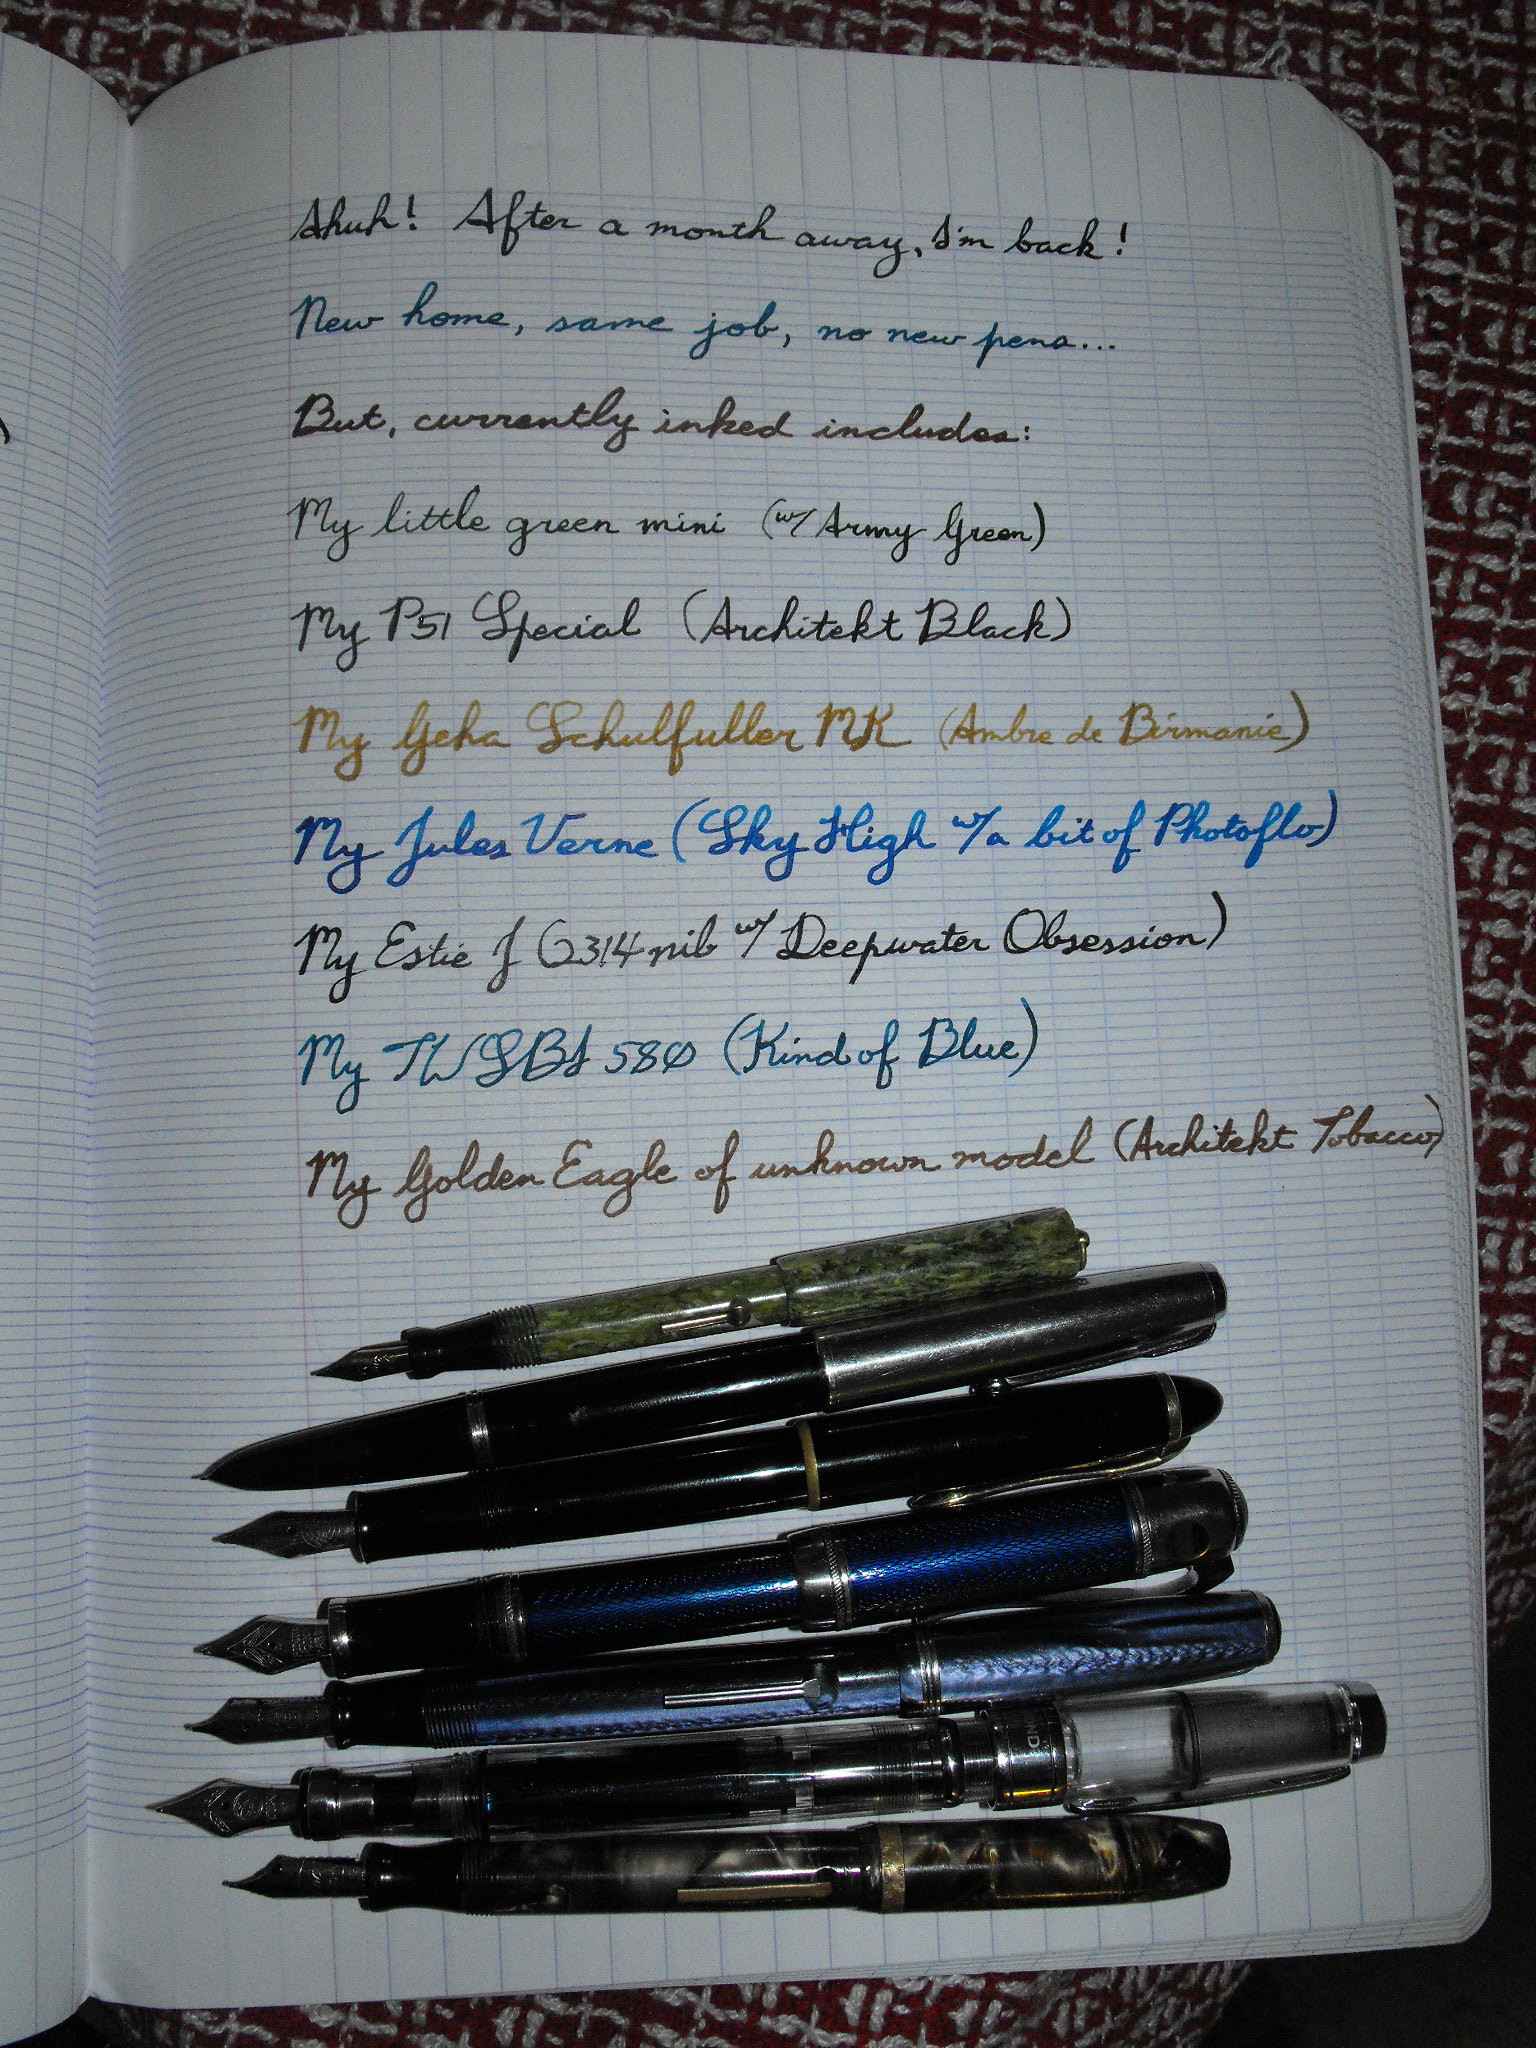 Ahuh! After a month away, I'm back!
New home, same job, no new pens...
But, currently inked includes:
My little green mini (w/ Army Green)
My P51 Special (Architekt Black)
My Geha Schulfuller MK (Ambre de Birmanie)
My Jules Verne (Sky High w/ a bit of Photoflo)
My Estie J (2314 nib w/ Deepwater Obsession)
My TWSBI 580 (Kind of Blue)
My Golden Eagle of unknown model (Architekt Tobacco)